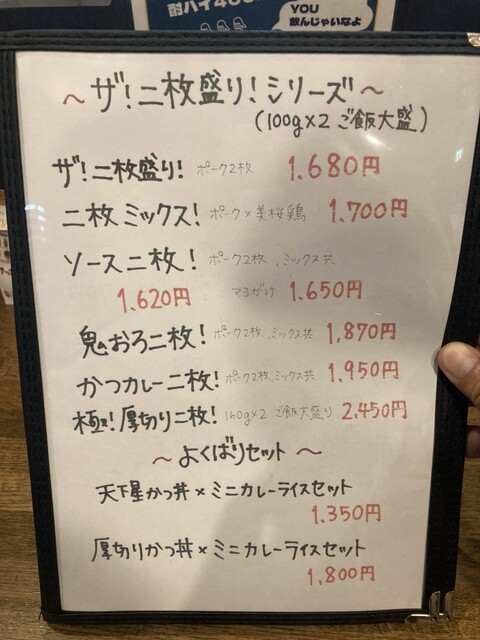 酎ハイ400
YOU
飲んじゃいなよ
～ザ!二枚盛り!シリーズ～
(100g×2 ご飯大盛)
ザ!二枚盛り! ポーク2枚 1.680円
二枚ミックス! ポーク×美桜鶏 1.700円
ソース二枚! ポーク2枚、ミックス共
1.620円 マヨがけ 1.650円
鬼おろ二枚! ポーク2枚、ミックス共 1,870円
かつカレー二枚! ポーク2枚、ミックス共 1.950円
極!厚切り二枚! 160g×2 ご飯大盛り 2,450円
～よくばりセット～
天下星かつ丼×ミニカレーライスセット
1.350円
厚切りかつ丼×ミニカレーライスセット
1,800円